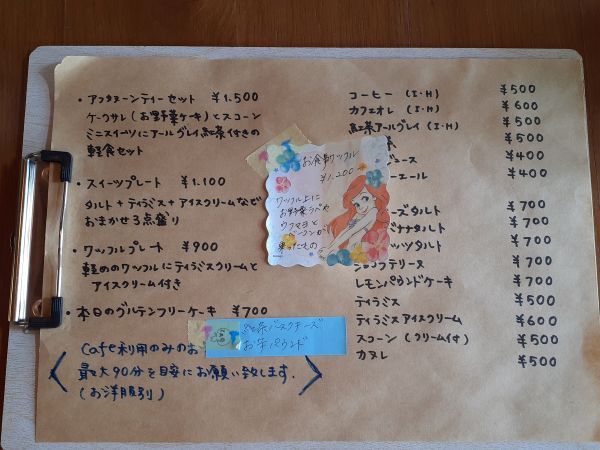 ・アフタヌーンティーセット ¥1.500
ケークサレ(お野菜ケーキ)とスコーン
ミニスイーツにアールグレイ紅茶付きの
軽食セット
・スイーツプレート ¥1.100
タルト+ティラミス+アイスクリームなど
おまかせ3点盛り
・ワッフルプレート ¥900
軽めのワッフルにティラミスクリームと
アイスクリーム付き
・本日のグルテンフリーケーキ ¥700
Cafe利用のみのお
最大90分を目安にお願い致します.
(お洋服別)
バスクチーズ
パウンド
お食事ワッフル
¥1.200
ワッフル上に
お野菜
ベーコンが
乗ったもの
コーヒー (I・H) ¥500
カフェオレ (I・H) ¥600
紅茶アールグレイ (I・H) ¥500
¥500
ース ¥400
エール ¥400
ーズタルト ¥700
バナナタルト ¥700
ッツタルト ¥700
ショコラテリーヌ ¥700
レモンパウンドケーキ ¥700
ティラミス ¥500
ティラミスアイスクリーム ¥600
スコーン (クリーム付) ¥500
カヌレ ¥500